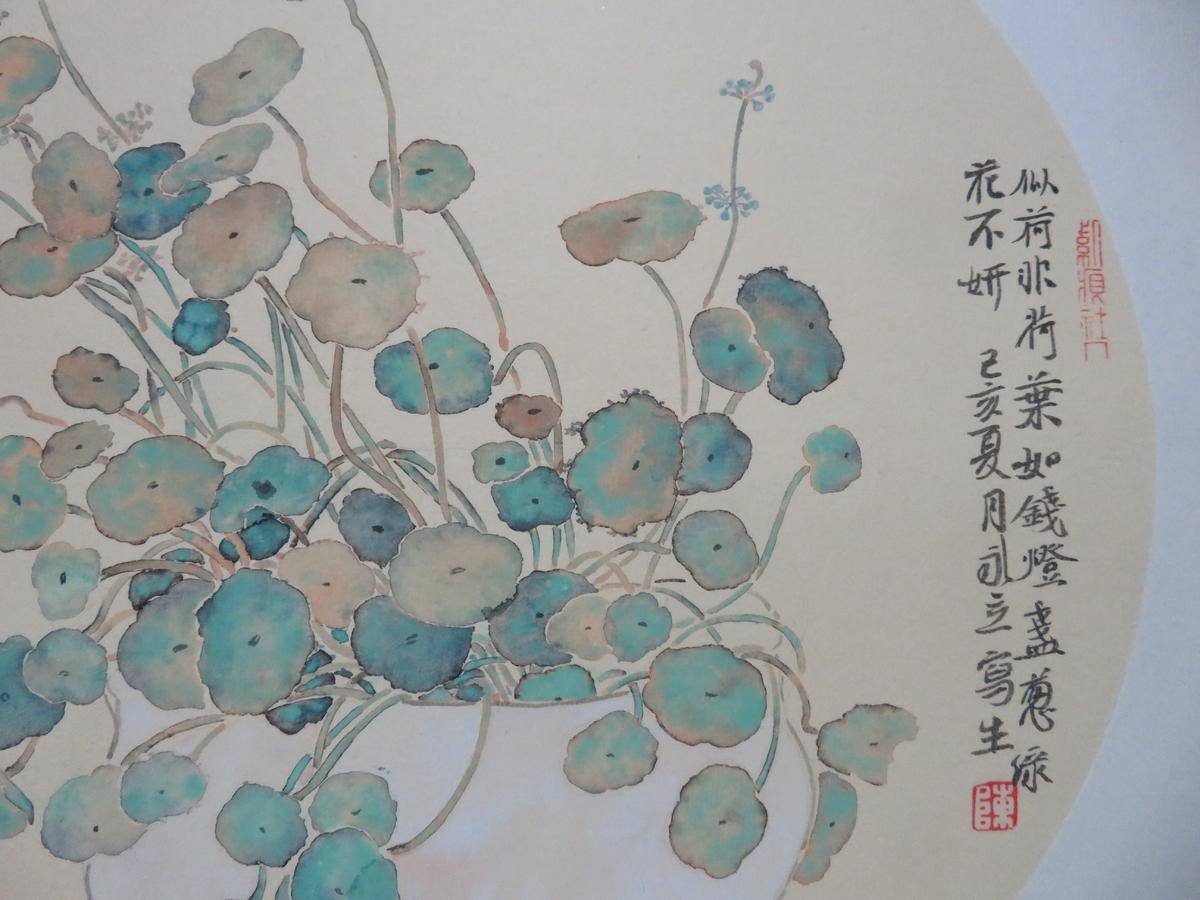 似荷非荷葉如錢燈盞蔥綠
花不妍 己亥夏月永立寫生
陳